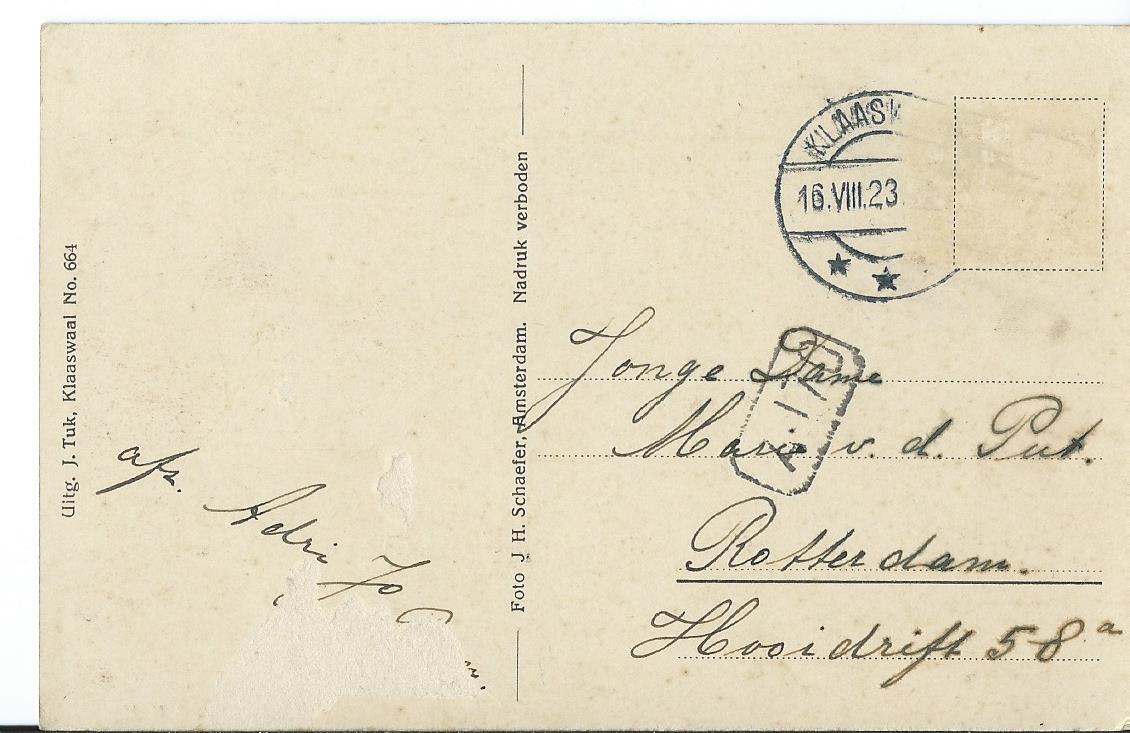 KLAASW
16.VIII.23
Uitg. J. Tuk, Klaaswaal No. 664
Foto J. H. Schaefer, Amsterdam. Nadruk verboden
Jonge Dame
v. d. Put.
Rotterdam.
Hooidrift 58a
afz. Adri Jo